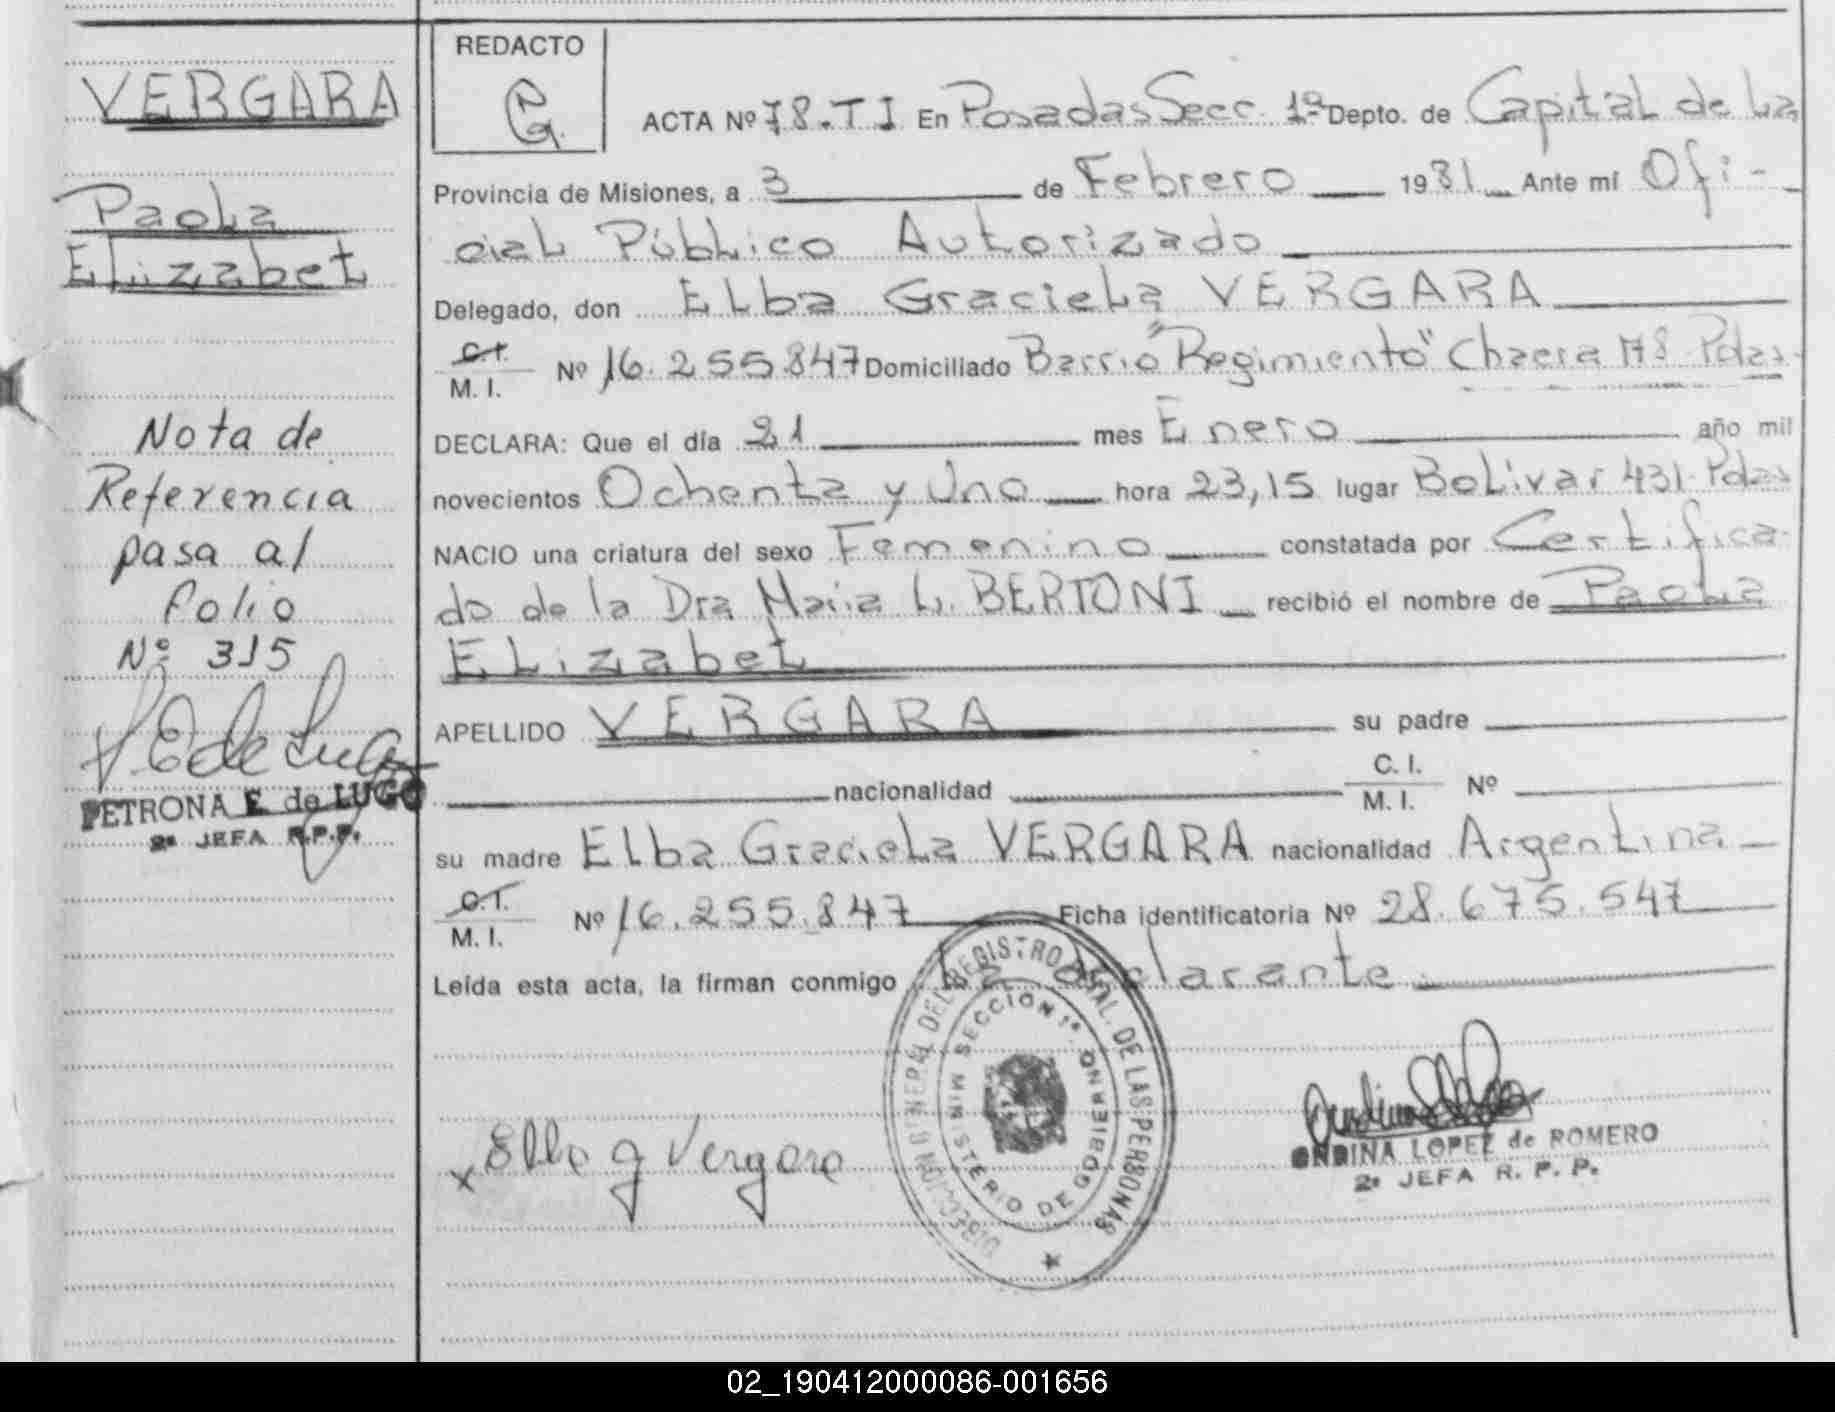 VERGARA
Paola
Elizabet
Nota de
Referencia
pasa al
folio
Nº 315
PETRONA E de LUGO
2ª JEFA R.P.P.
REDACTO
G.
ACTA Nº 78.TI En Posadas Secc. 1ª Depto. de Capital de La
Provincia de Misiones, a 3 de Febrero 1981 Ante mí Ofi-
cial Público Autorizado
Delegado, don Elba Graciela VERGARA
C.I. M.I. Nº 16.255.847 Domiciliado Barrio "Regimiento" Chacra Pdas.
DECLARA: Que el día 21 mes Enero año mil
novecientos Ochenta y Uno hora 23,15 lugar Bolivar 431 Pdas
NACIO una criatura del sexo Femenino constatada por Certifica-
do de la Dra Maria L. BERTONI recibió el nombre de Paola
Elizabet
APELLIDO VERGARA su padre
nacionalidad C. I. M. I. Nº
su madre Elba Graciela VERGARA nacionalidad Argentina
C.I. M. I. Nº 16.255.847 Ficha identificatoria Nº 28.675.547
Leída esta acta, la firman conmigo la declarante
DIRECCION GENERAL DEL REGISTRO PCIAL. DE LAS PERSONAS
SECCION 1ª
MINISTERIO DE GOBIERNO
x Elba G Vergara
ONDINA LOPEZ de ROMERO
2ª JEFA R. P. P.
02_190412000086-001656